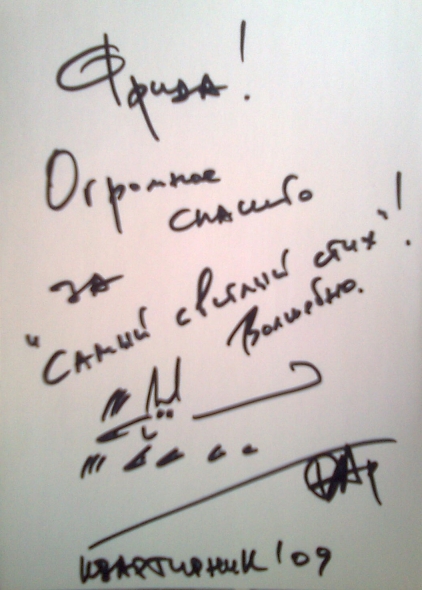 Фрида!
Огромное
спасибо
за
"Самый светлый стих"!
Волшебно.
квартирник '09